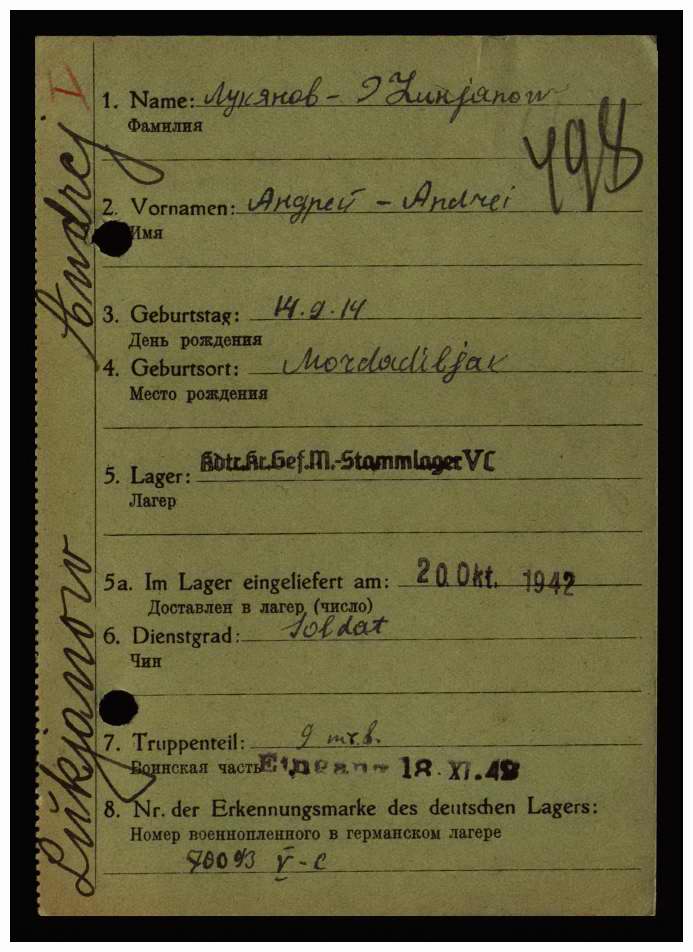 V
1. Name: Лукянов - Lukjanow
Фамилия
498
2. Vornamen: Андрей - Andrei
Имя
3. Geburtstag: 14.9.14
День рождения
4. Geburtsort:
Место рождения
5. Lager: Kdtr.Kr.Gef.M.-Stammlager VC
Лагер
5a. Im Lager eingeliefert am: 20. Okt. 1942
Доставлен в лагер (число)
6. Dienstgrad: Soldat
Чин
7. Truppenteil: 9
Воинская часть Eingang 18. XI. 42
8. Nr. der Erkennungsmarke des deutschen Lagers:
Номер военнопленного в германском лагере
V-C
Lukjanow Andrej